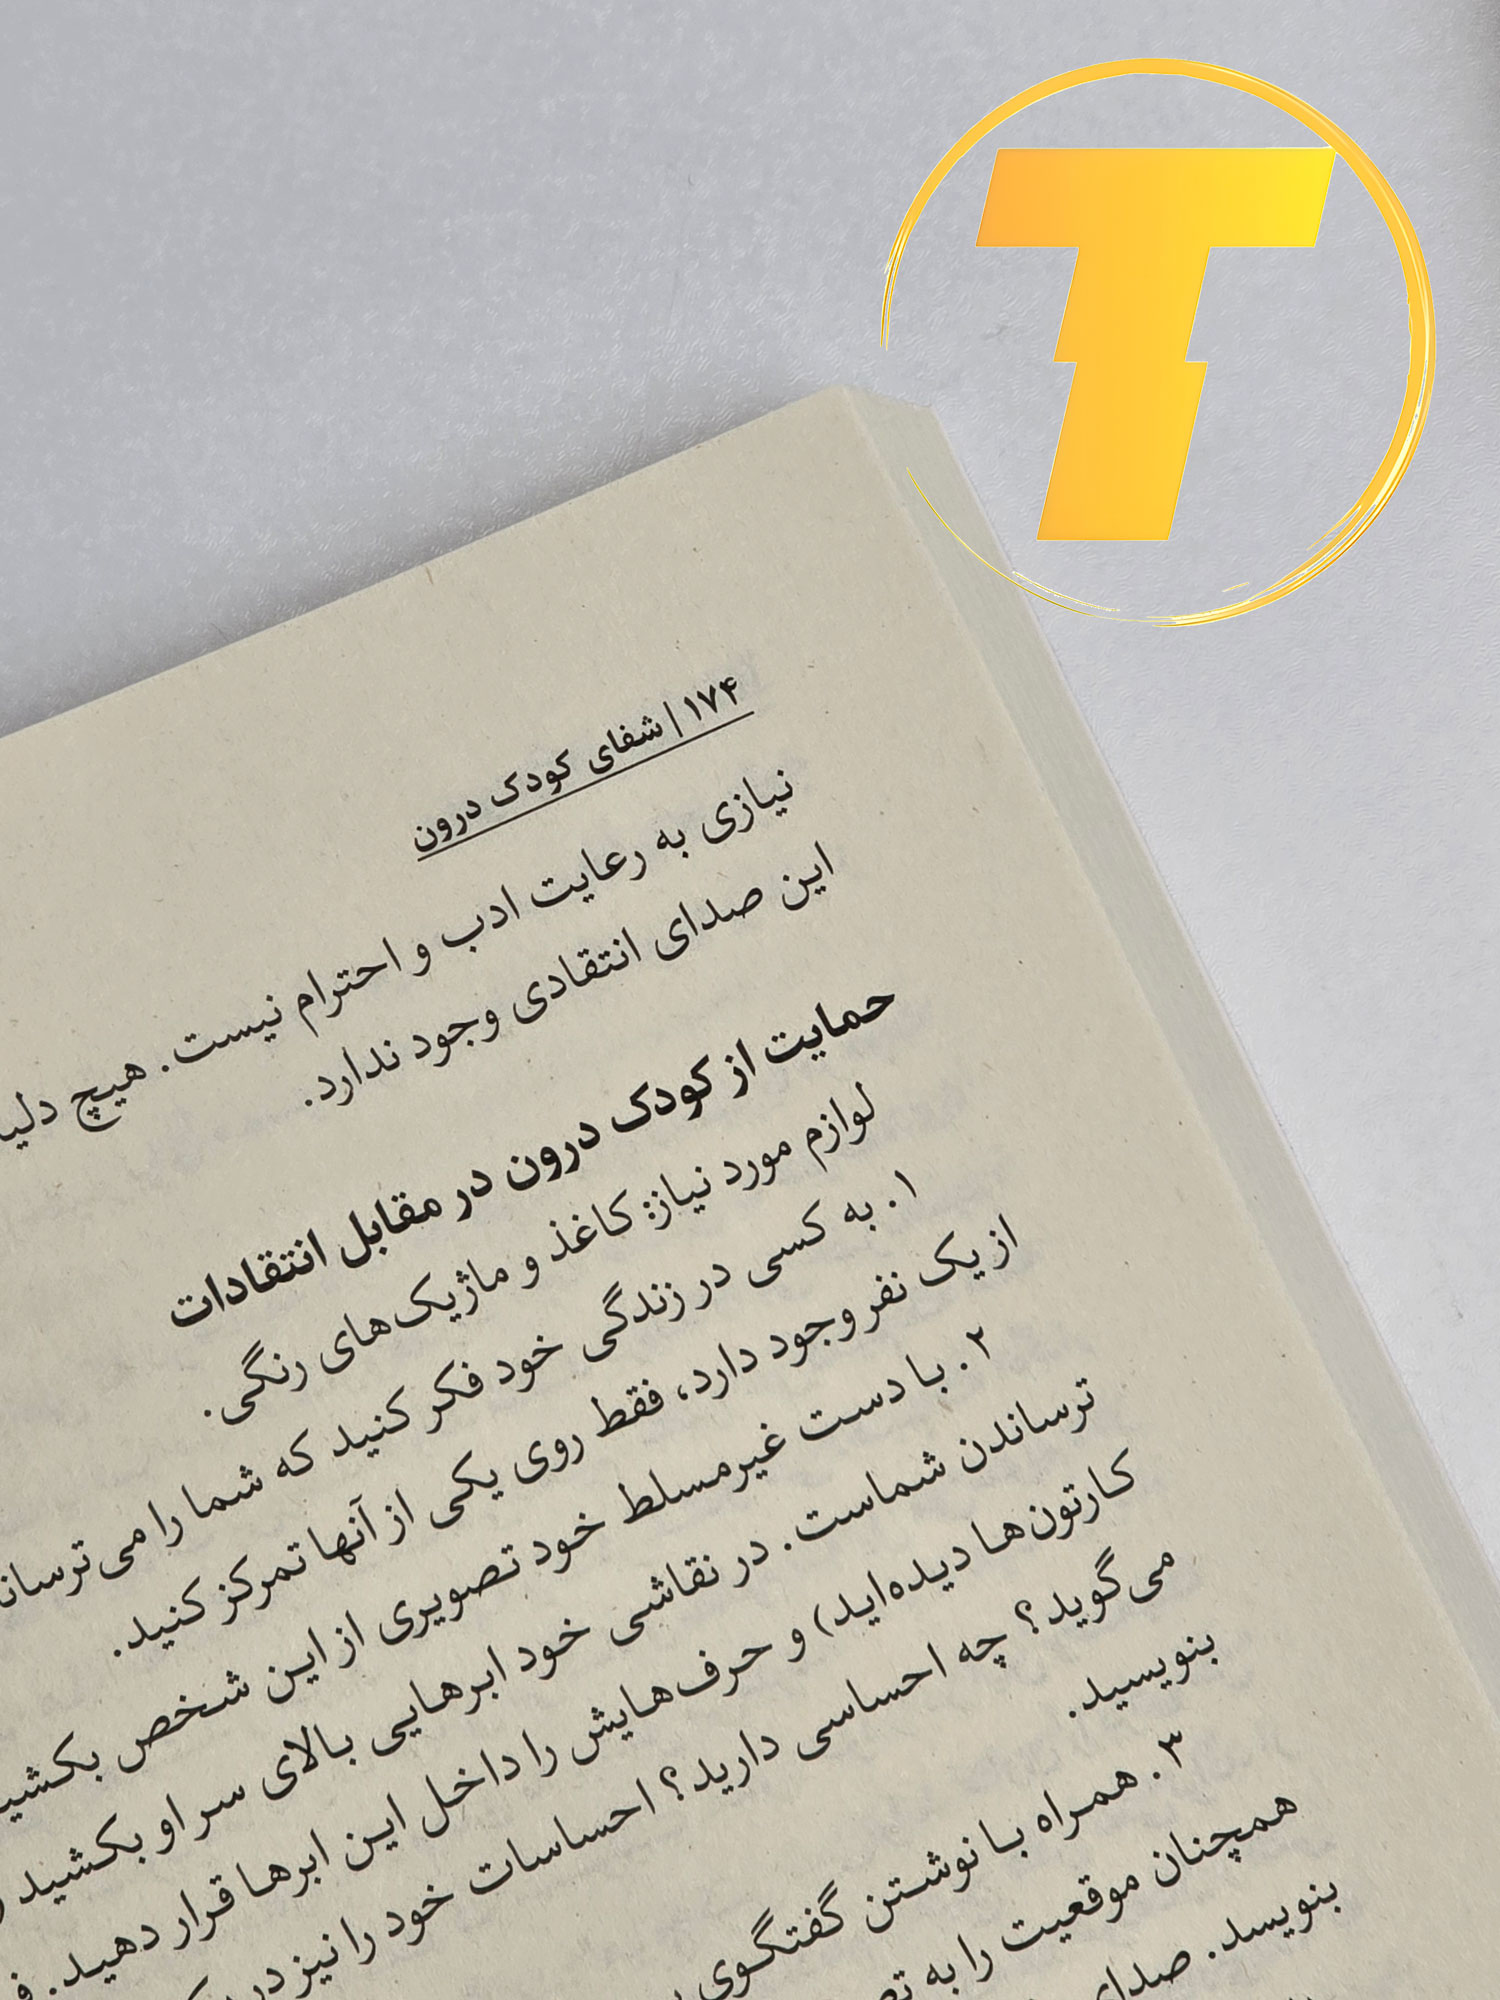 T
۱۷۴ | شفای کودک درون
نیازی به رعایت ادب و احترام نیست. هیچ
این صدای انتقادی وجود ندارد.
حمایت از کودک درون در مقابل انتقادات
لوازم مورد نیاز: کاغذ و ماژیک‌های رنگی.
۱. به کسی در زندگی خود فکر کنید که شما را
از یک نفر وجود دارد، فقط روی یکی از آنها تمرکز کنید.
۲. با دست غیرمسلط خود تصویری از این شخص
ترساندن شماست. در نقاشی خود ابرهایی بالای سر او بکشید
کارتون‌ها دیده‌اید) و حرف‌هایش را داخل این ابرها قرار دهید.
می‌گوید؟ چه احساسی دارید؟ احساسات خود را نیز
بنویسید.
۳. همراه با نوشتن گفتگوی
همچنان موقعیت را به
بنویسد. صدای